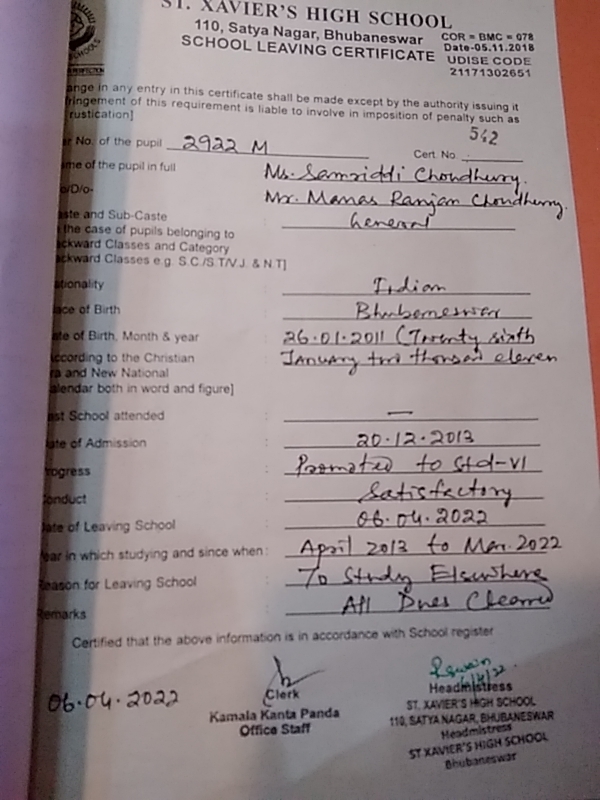 ST. XAVIER'S HIGH SCHOOL
110, Satya Nagar, Bhubaneswar
SCHOOL LEAVING CERTIFICATE
COR = BMC = 078
Date-05.11.2018
UDISE CODE
21171302651
ange in any entry in this certificate shall be made except by the authority issuing it
fringement of this requirement is liable to involve in imposition of penalty such as
rustication]
er No. of the pupil 2922 M Cert. No. 542
me of the pupil in full Ms. Samriddi Choudhury.
o/D/o- Mr. Manas Ranjan Choudhury.
aste and Sub-Caste General
the case of pupils belonging to
ckward Classes and Category
ackward Classes e.g. S.C./S.T/V.J. & N.T]
tionality Indian
ace of Birth Bhubaneswar
te of Birth, Month & year 26.01.2011 (Twenty sixth
ccording to the Christian January two thousad eleven
ra and New National
alendar both in word and figure]
st School attended : —
ate of Admission : 20.12.2013
rogress : Promoted to Std-VI
onduct : Satisfactory
ate of Leaving School : 06.04.2022
ear in which studying and since when : April 2013 to Mar. 2022
eason for Leaving School : To Study Elsewhere
emarks : All Dues Cleared
Certified that the above information is in accordance with School register
06.04.2022
Clerk
Kamala Kanta Panda
Office Staff
Headmistress
ST. XAVIER'S HIGH SCHOOL
110, SATYA NAGAR, BHUBANESWAR
Headmistress
ST XAVIER'S HIGH SCHOOL
Bhubaneswar